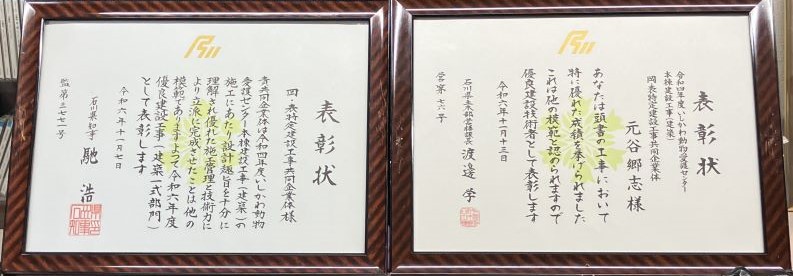 表彰状
岡・表特定建設工事共同企業体 様
貴共同企業体は令和四年度いしかわ動物
愛護センター本棟建設工事(建築)の
施工にあたり設計趣旨を十分に
理解され優れた施工管理と技術力に
より立派に完成させたことは他の
模範でありますよって令和六年度
優良建設工事(建築一式部門)
として表彰します
令和六年十一月七日
石川県知事 馳 浩
監第三七七一号
表彰状
令和四年度いしかわ動物愛護センター
本棟建設工事(建築)
岡・表特定建設工事共同企業体
元谷郷志 様
あなたは頭書の工事において
特に優れた成績を挙げられました
これは他の模範と認められますので
優良建設技術者として表彰します
令和六年十一月十三日
石川県土木部営繕課長 渡邊 学
営第七六号